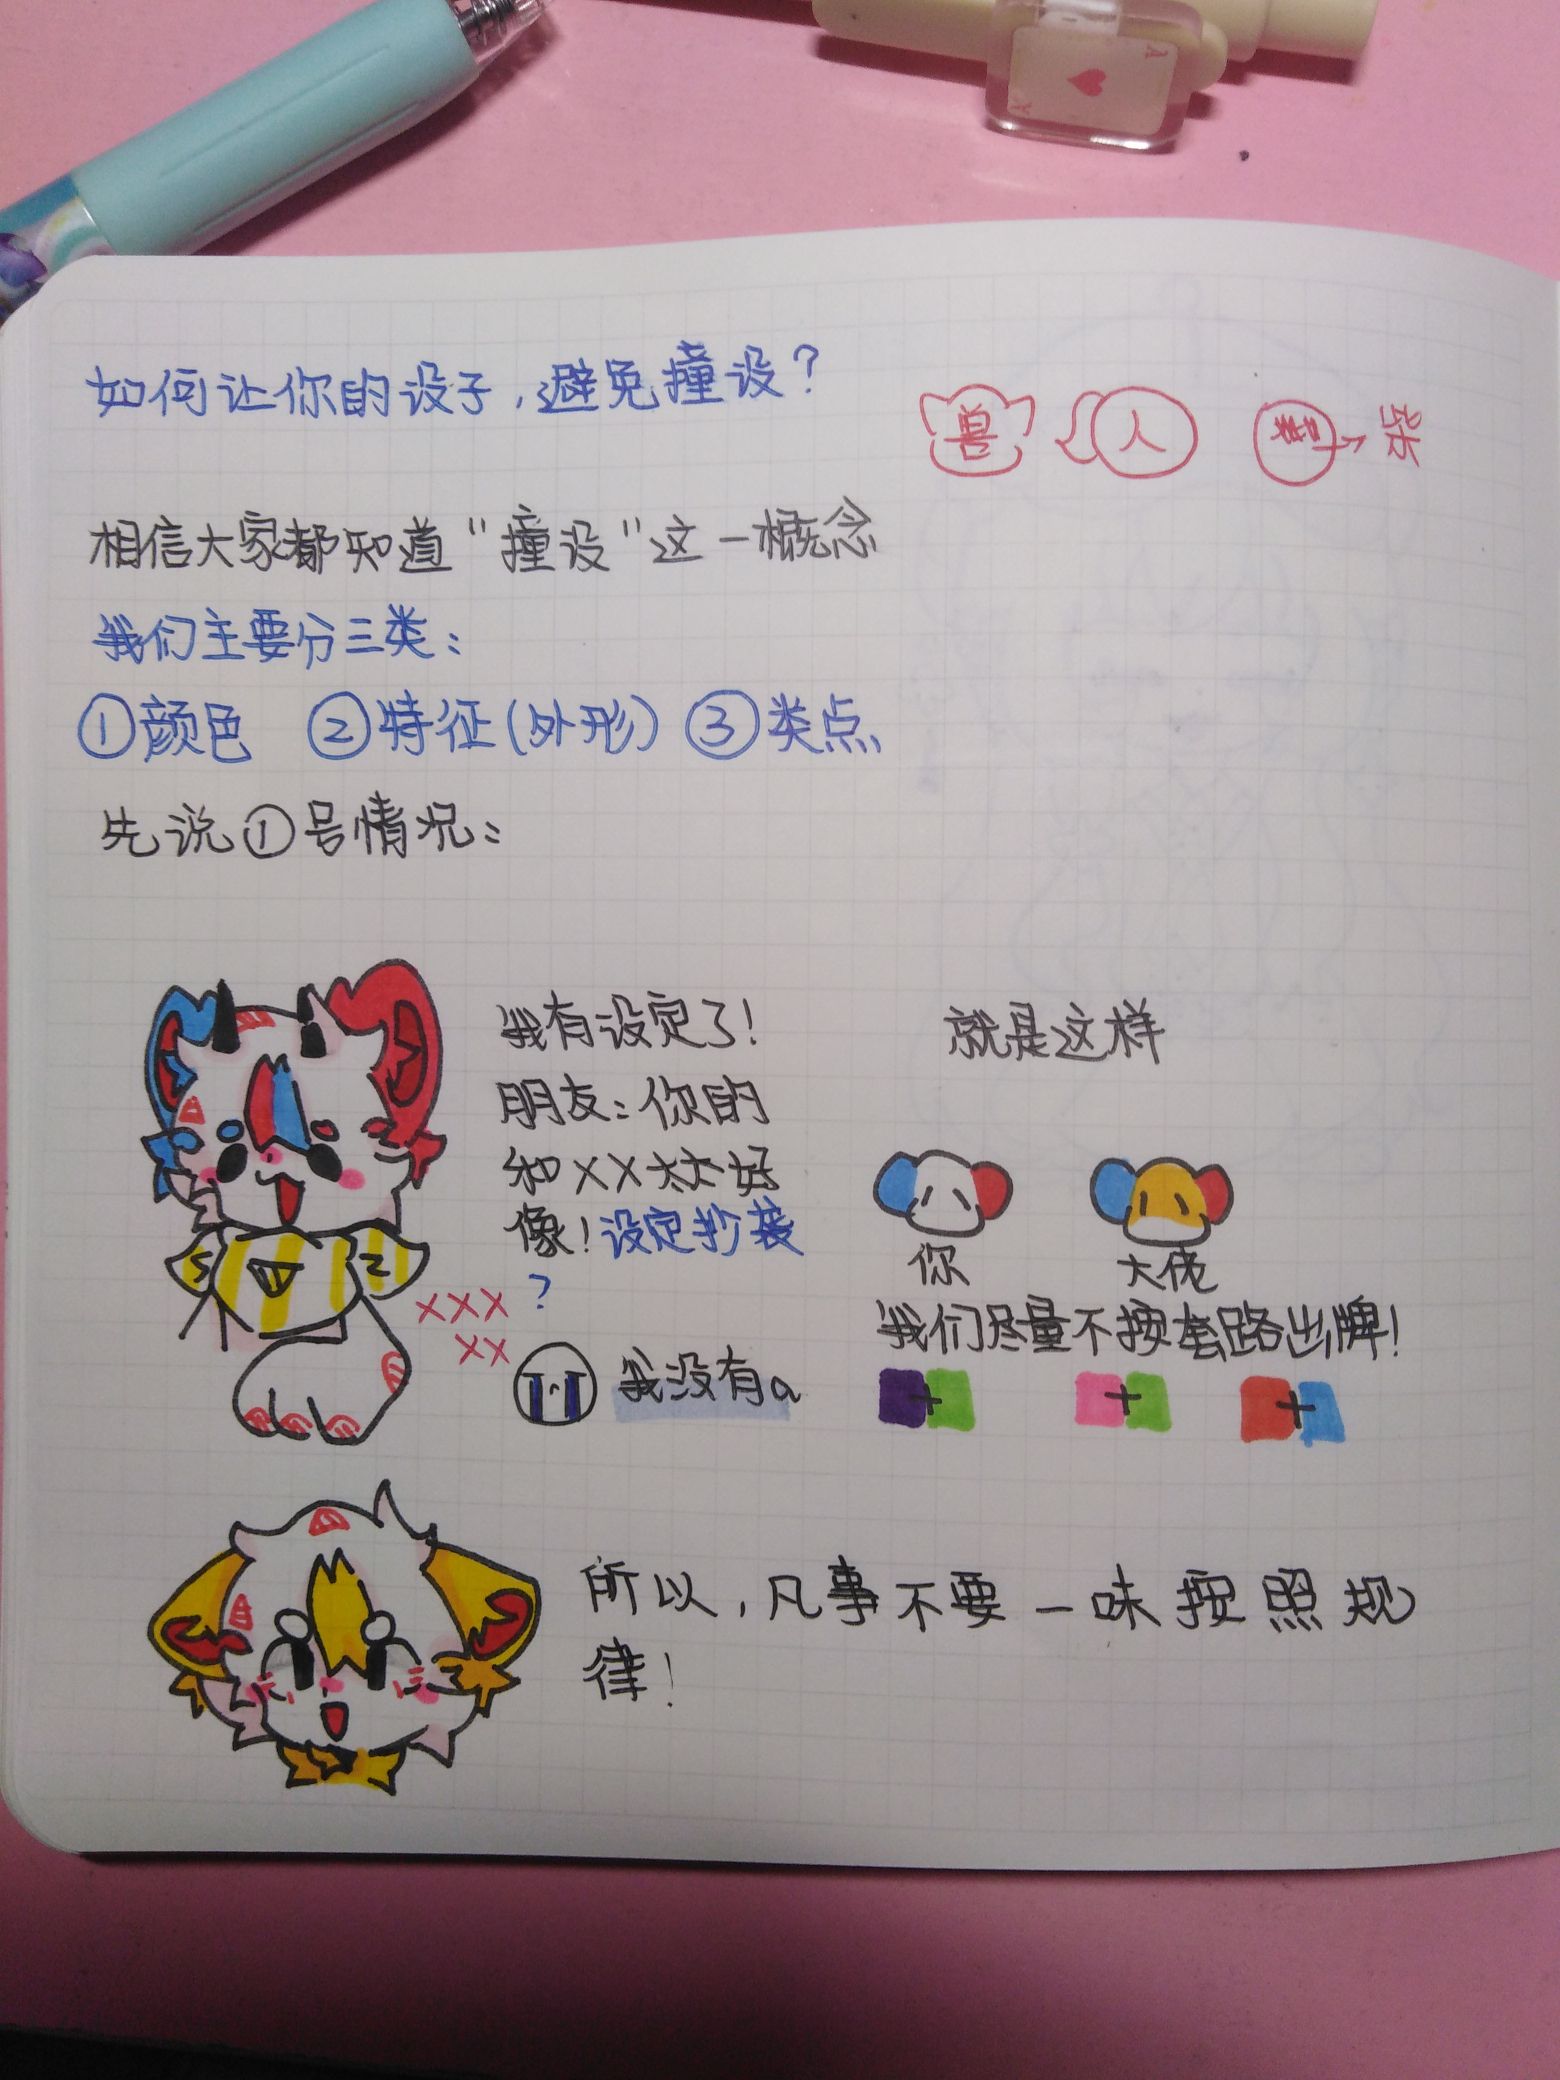 如何让你的设子,避免撞设?
兽 人
相信大家都知道"撞设"这一概念
我们主要分三类:
①颜色 ②特征(外形) ③类点
先说①号情况:
我有设定了!
朋友:你的
和××太太好
像!设定抄袭
?
×××
××
我没有a
就是这样
你 大佬
我们尽量不按套路出牌!
+ + +
所以,凡事不要一味按照规
律!